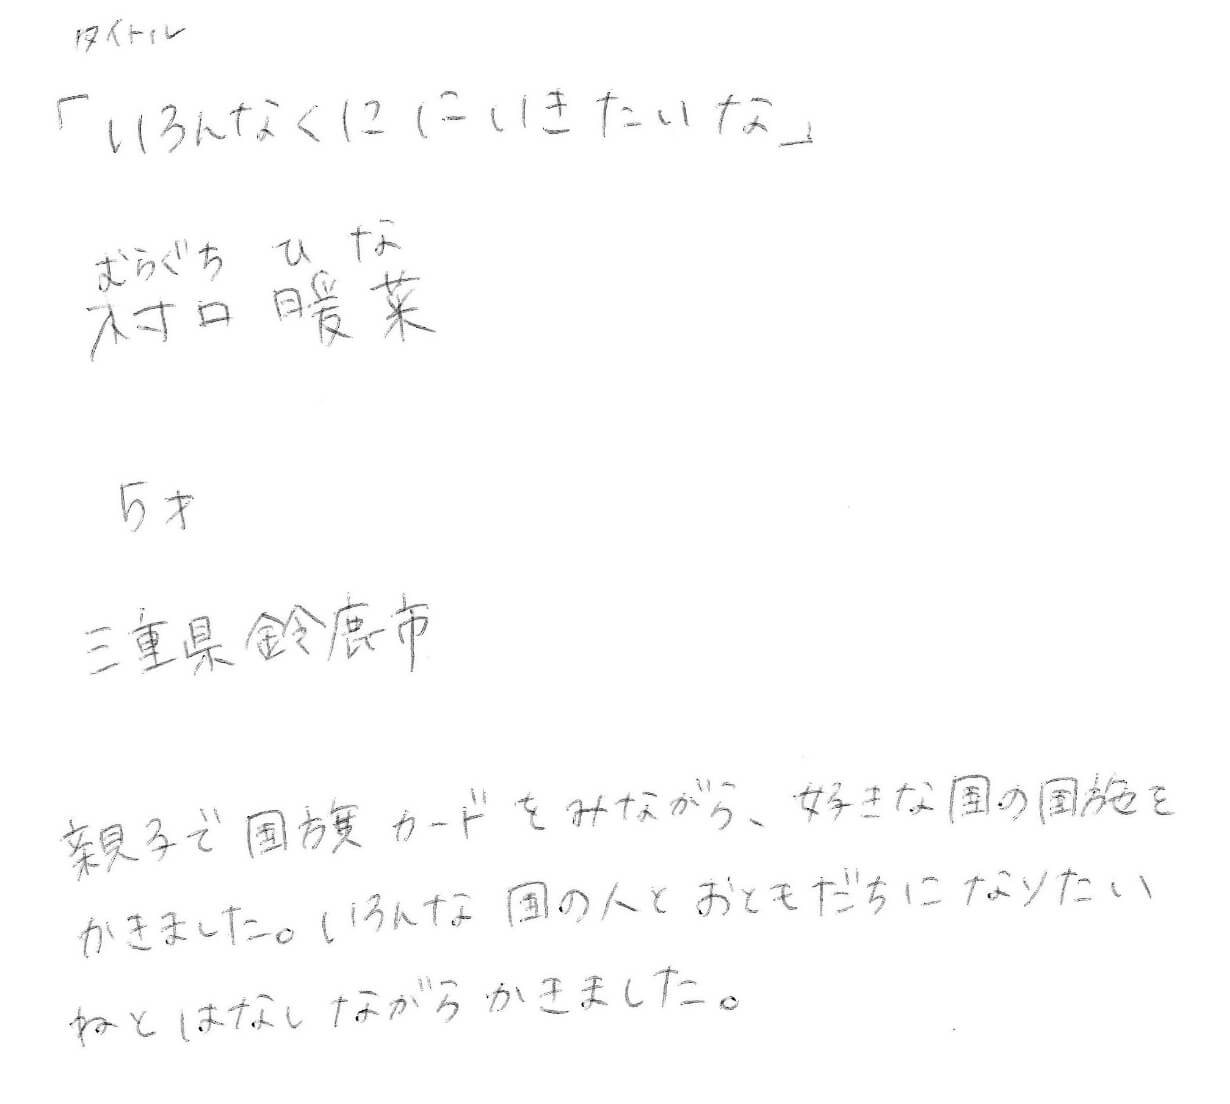 タイトル
「いろんなくににいきたいな」
むらぐち ひな
村口 暖菜
5才
三重県鈴鹿市
親子で国旗カードをみながら、好きな国の国旗を
かきました。いろんな国の人とおともだちになりたい
ねとはなしながらかきました。